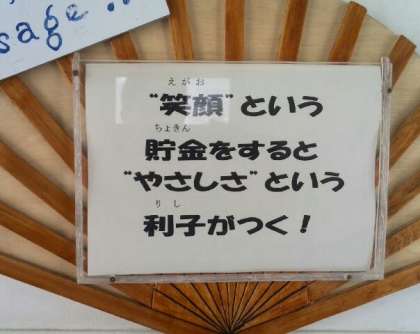 sage..
えがお
"笑顔"という
ちょきん
貯金をすると
"やさしさ"という
りし
利子がつく！